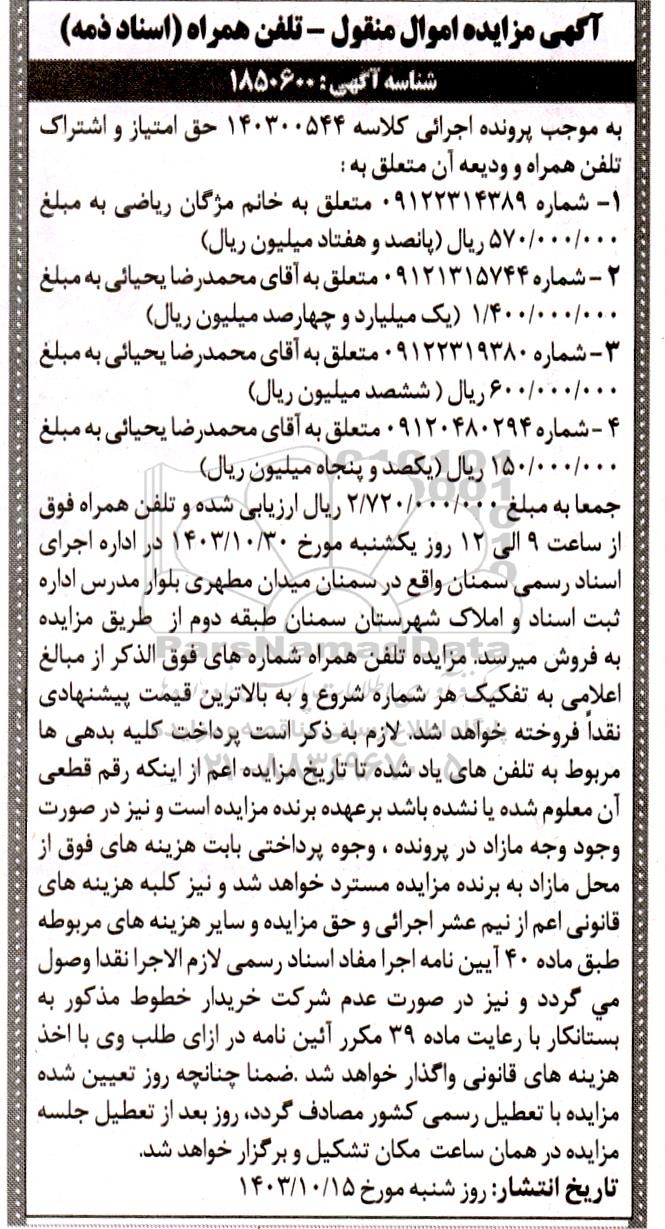 آگهی مزایده اموال منقول - تلفن همراه (اسناد ذمه)
شناسه آگهی: ۱۸۵۰۶۰۰
به موجب پرونده اجرائی کلاسه ۱۴۰۳۰۰۵۴۴ حق امتیاز و اشتراک
تلفن همراه و ودیعه آن متعلق به :
۱- شماره ۰۹۱۲۲۳۱۴۳۸۹ متعلق به خانم مژگان ریاضی به مبلغ
۵۷۰/۰۰۰/۰۰۰ ریال (پانصد و هفتاد میلیون ریال)
۲ - شماره ۰۹۱۲۱۳۱۵۷۴۴ متعلق به آقای محمدرضا یحیائی به مبلغ
۱/۴۰۰/۰۰۰/۰۰۰ (یک میلیارد و چهارصد میلیون ریال)
۳- شماره ۰۹۱۲۲۳۱۹۳۸۰ متعلق به آقای محمدرضا یحیائی به مبلغ
۶۰۰/۰۰۰/۰۰۰ ریال ( ششصد میلیون ریال)
۴ - شماره ۰۹۱۲۰۴۸۰۲۹۴ متعلق به آقای محمدرضا یحیائی به مبلغ
۱۵۰/۰۰۰/۰۰۰ ریال (یکصد و پنجاه میلیون ریال)
جمعا به مبلغ ۲/۷۲۰/۰۰۰/۰۰۰ ریال ارزیابی شده و تلفن همراه فوق
از ساعت ۹ الی ۱۲ روز یکشنبه مورخ ۱۴۰۳/۱۰/۳۰ در اداره اجرای
اسناد رسمی سمنان واقع در سمنان میدان مطهری بلوار مدرس اداره
ثبت اسناد و املاک شهرستان سمنان طبقه دوم از طریق مزایده
به فروش میرسد. مزایده تلفن همراه شماره های فوق الذکر از مبالغ
اعلامی به تفکیک هر شماره شروع و به بالاترین قیمت پیشنهادی
نقداً فروخته خواهد شد. لازم به ذکر است پرداخت کلیه بدهی ها
مربوط به تلفن های یاد شده تا تاریخ مزایده اعم از اینکه رقم قطعی
آن معلوم شده یا نشده باشد برعهده برنده مزایده است و نیز در صورت
وجود وجه مازاد در پرونده ، وجوه پرداختی بابت هزینه های فوق از
محل مازاد به برنده مزایده مسترد خواهد شد و نیز کلبه هزینه های
قانونی اعم از نیم عشر اجرائی و حق مزایده و سایر هزینه های مربوطه
طبق ماده ۴۰ آیین نامه اجرا مفاد اسناد رسمی لازم الاجرا نقدا وصول
می گردد و نیز در صورت عدم شرکت خریدار خطوط مذکور به
بستانکار با رعایت ماده ۳۹ مکرر آئین نامه در ازای طلب وی با اخذ
هزینه های قانونی واگذار خواهد شد .ضمنا چنانچه روز تعیین شده
مزایده با تعطیل رسمی کشور مصادف گردد، روز بعد از تعطیل جلسه
مزایده در همان ساعت مکان تشکیل و برگزار خواهد شد.
تاریخ انتشار: روز شنبه مورخ ۱۴۰۳/۱۰/۱۵
ParsNamadData